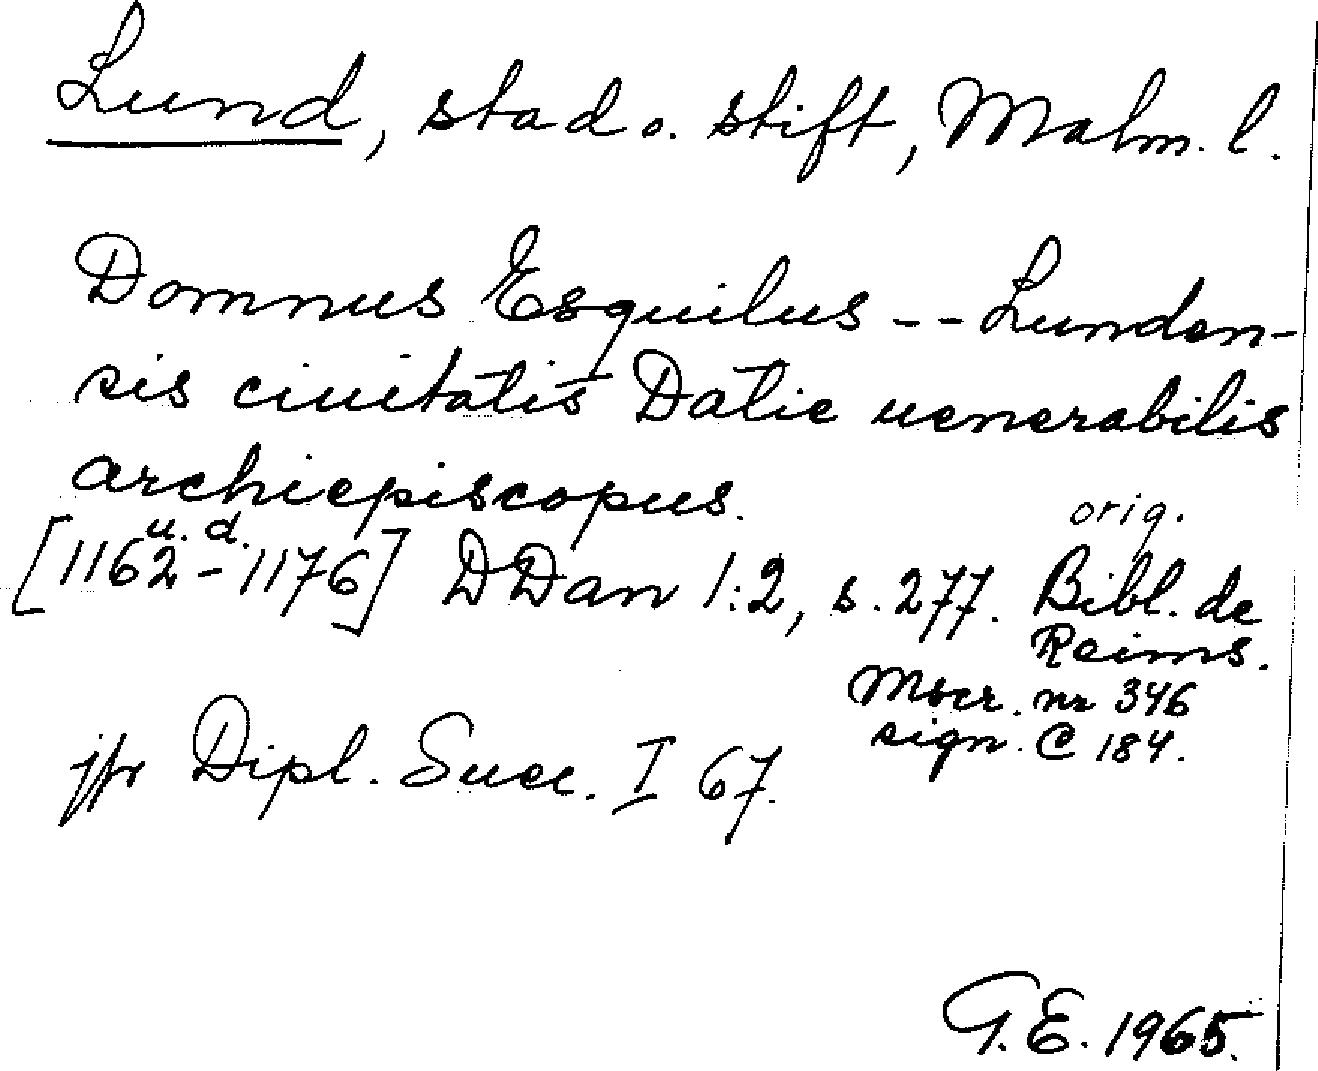 Lund, stad o. stift, Malm. l.
Domnus Esquilus -- Lunden-
sis ciuitatis Datie uenerabilis
archiepiscopus.
u. d.
[1162-1176] DDan 1:2, s. 277. orig. Bibl. de
Reims.
Mscr. nr 346
sign. C 184.
jfr Dipl. Suec. I 67.
G.E. 1965.